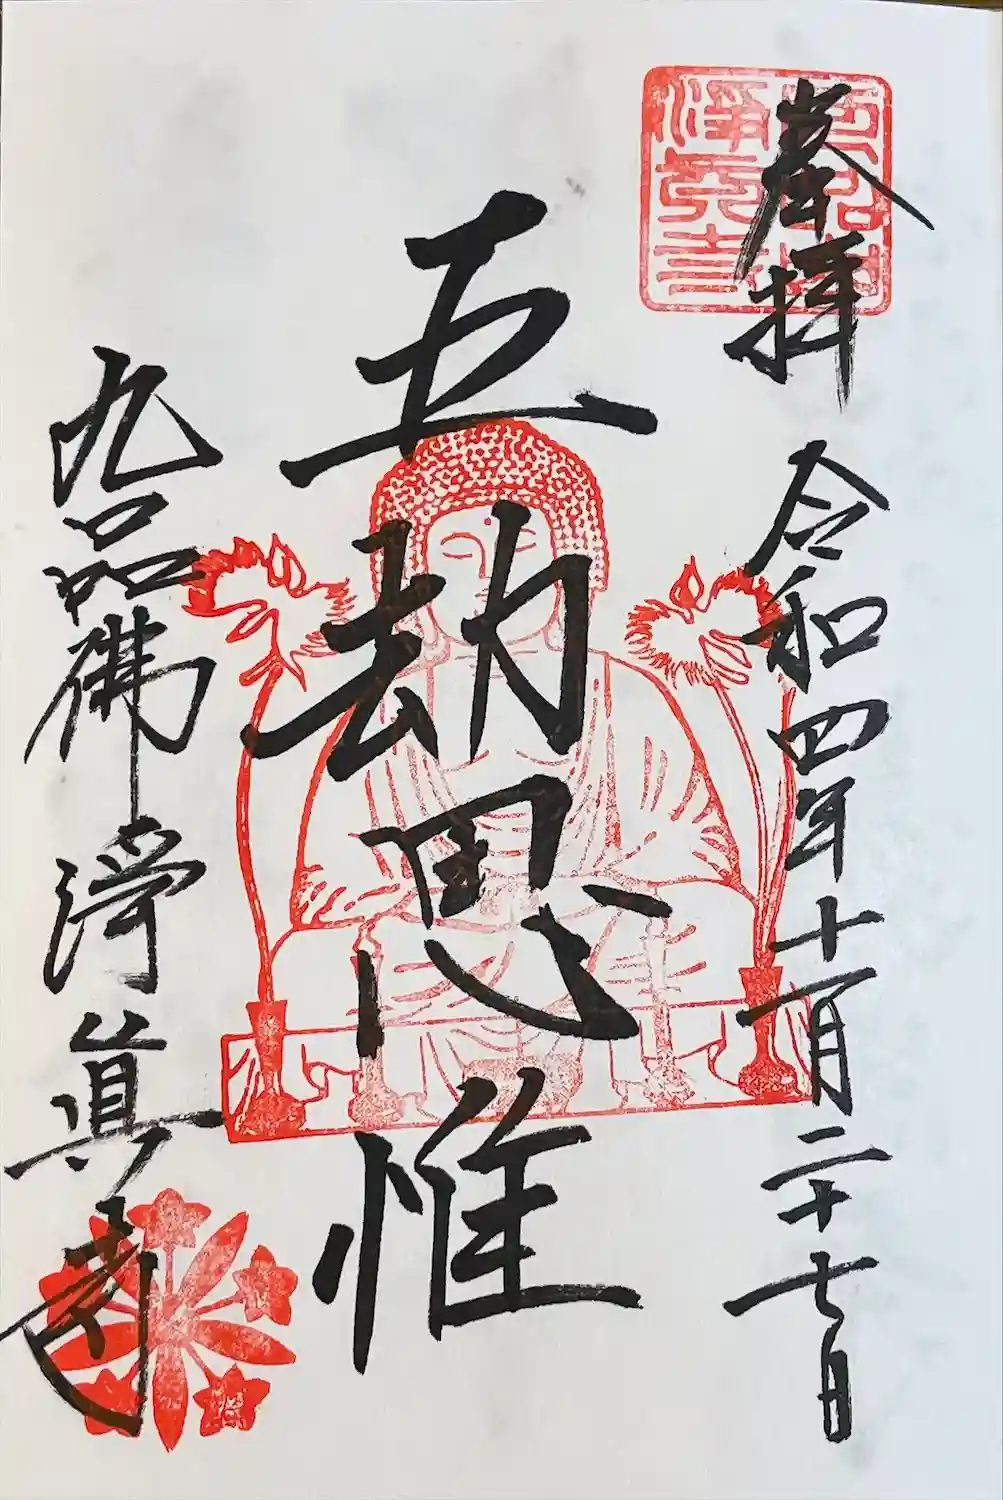 奉拝 令和四年十一月二十七日
五劫思惟
九品佛 淨真寺